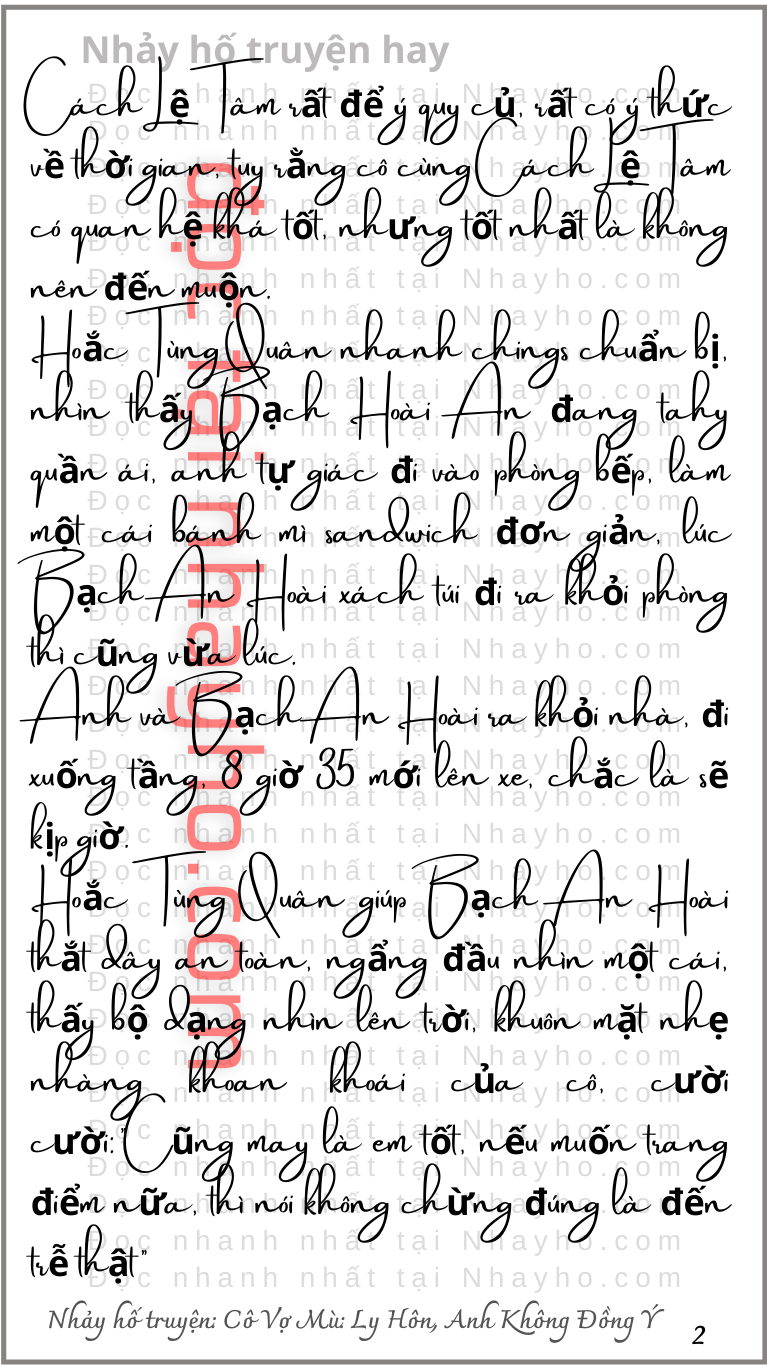 Nhảy hố truyện hay
Cách Lệ Tâm rất để ý quy củ, rất có ý thức
về thời gian, tuy rằng cô cùng Cách Lệ Tâm
có quan hệ khá tốt, nhưng tốt nhất là không
nên đến muộn.
Hoắc Tùng Quân nhanh chings chuẩn bị,
nhìn thấy Bạch Hoài An đang tahy
quần ái, anh tự giác đi vào phòng bếp, làm
một cái bánh mì sandwich đơn giản, lúc
Bạch An Hoài xách túi đi ra khỏi phòng
thì cũng vừa lúc.
Anh và Bạch An Hoài ra khỏi nhà, đi
xuống tầng, 8 giờ 35 mới lên xe, chắc là sẽ
kịp giờ.
Hoắc Tùng Quân giúp Bạch An Hoài
thắt dây an toàn, ngẩng đầu nhìn một cái,
thấy bộ dạng nhìn lên trời, khuôn mặt nhẹ
nhàng khoan khoái của cô, cười
cười:"Cũng may là em tốt, nếu muốn trang
điểm nữa, thì nói không chừng đúng là đến
trễ thật"
đọc tại nhayho.com
Đọc nhanh nhất tại Nhayho.com
Nhảy hố truyện: Cô Vợ Mù: Ly Hôn, Anh Không Đồng Ý
2